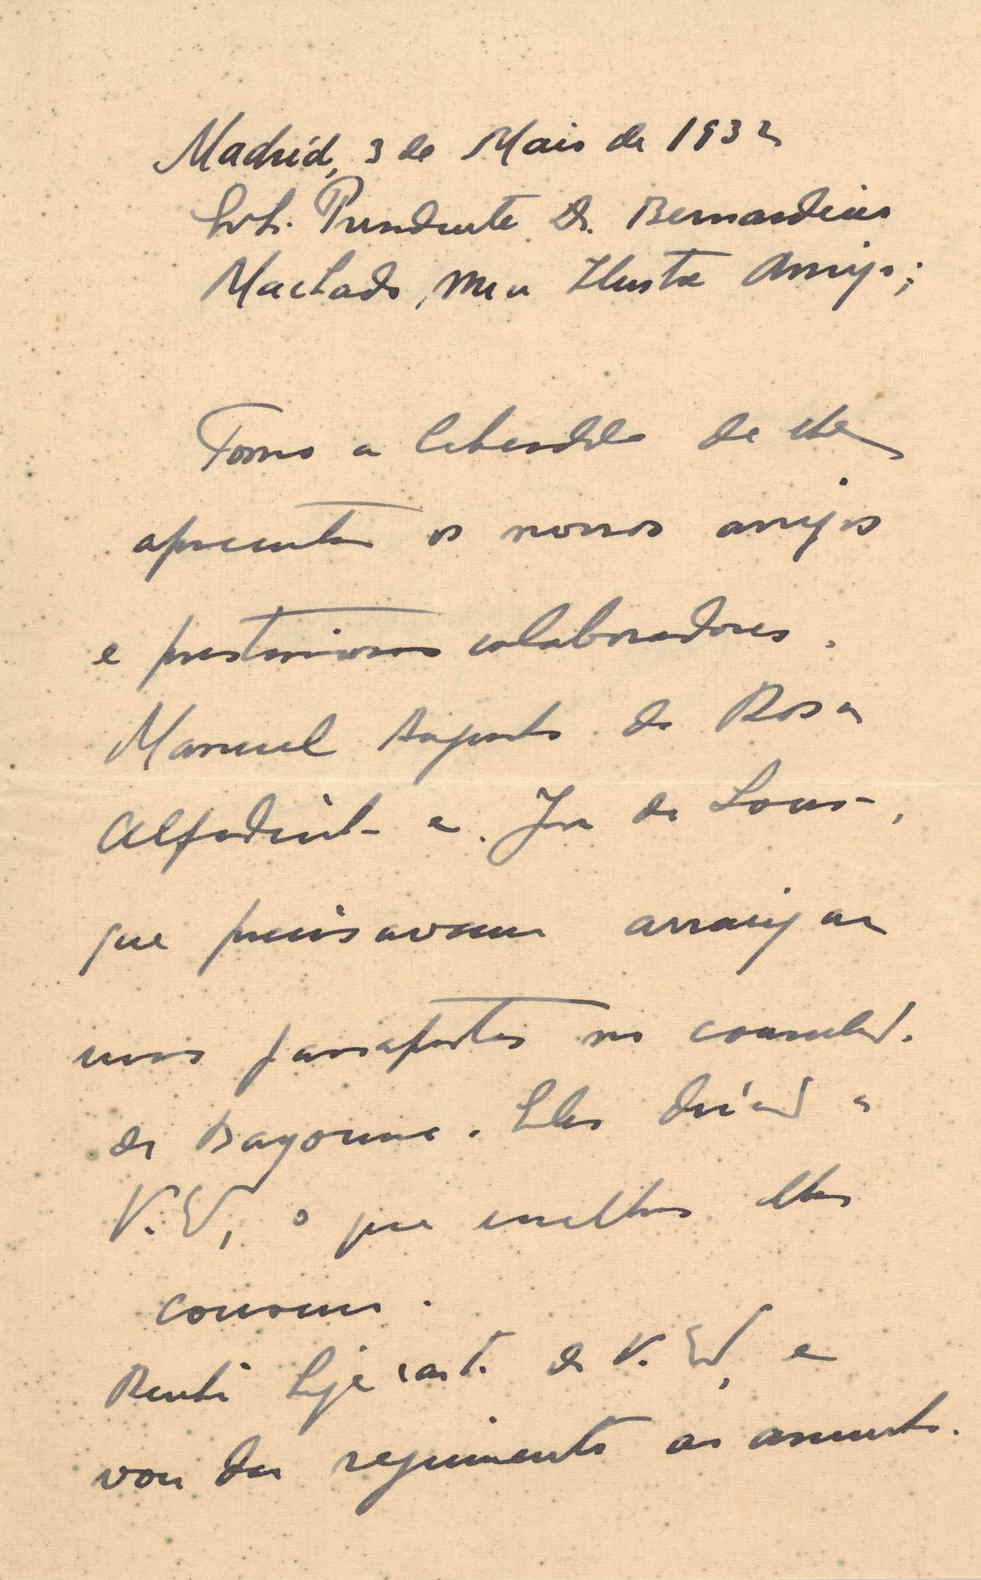 Madrid, 3 de Maio de 1932
Presidente Dr. Bernardino
Machado, meu Ilustre Amigo;
Tomo a liberdade de lhe
apresentar os nossos amigos
e prestimosos colaboradores,
Manuel Augusto da Rosa
Alfedinho e José de Sousa,
que precisavam arranjar
uns passaportes no consulado
de Bayonne. Eles dirão a
V. Ex, o que melhor lhes
convem.
Recebi hoje cart. de V. Ex, e
vou dar seguimento ao assunto.